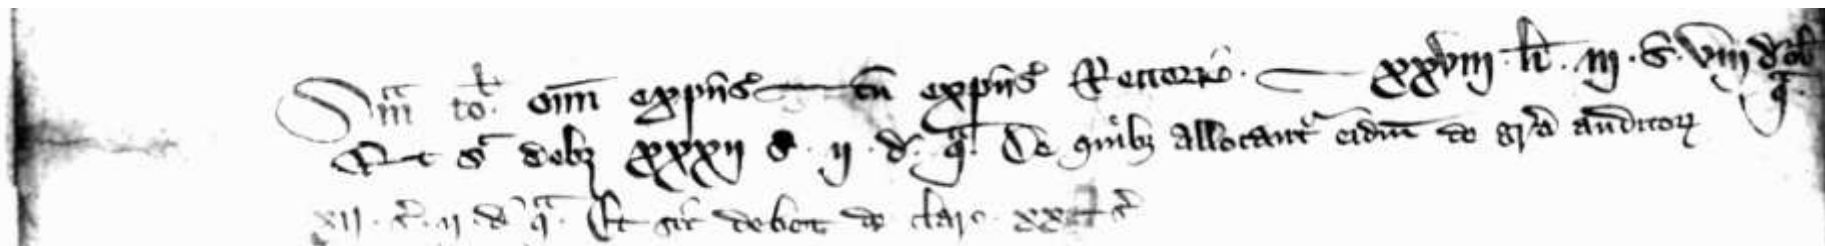 Sma to. oim expns cu expns Rectorie. xxviii. li. iii. s. viii d ob q.
Et s debz xxxii s. ii. d. q. De quibz allocant eidm de gra auditoz
xii. s. ii. d q. Et sic debet de claro xx s